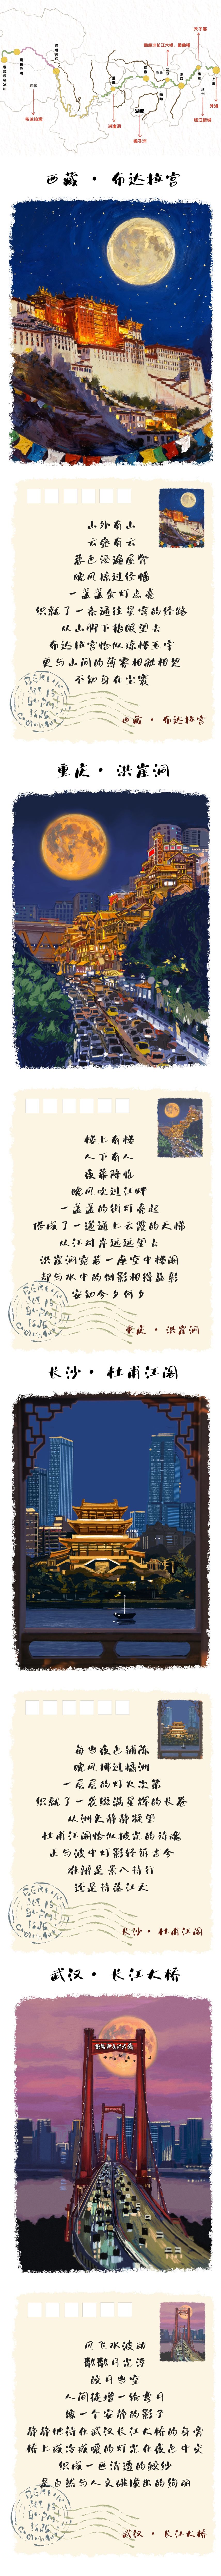 夫子庙
鹦鹉洲长江大桥、黄鹤楼
外滩
滨江新城
西藏
布达拉宫
重庆
洪崖洞
湖南
橘子洲
西藏·布达拉宫
山外有山
云叠有云
暮色浸遍屋脊
晚风掠过经幡
一盏盏金灯点亮
织就了一条通往星宫的经路
从山脚下抬眼望去
布达拉宫恰似琼楼玉宇
更与山间的薄雾相融相契
不知身在尘寰
西藏·布达拉宫
重庆·洪崖洞
楼上有楼
人下有人
夜幕降临
晚风吹过江畔
一盏盏的街灯亮起
搭成了一道通上云霞的天梯
从江对岸远远望去
洪崖洞宛若一座空中楼阁
却与水中的倒影相得益彰
安知今夕何夕
重庆·洪崖洞
长沙·杜甫江阁
每当夜色铺陈
晚风拂过橘洲
一层层的灯火次第
织就了一袭缀满星辉的长卷
从洲头静静凝望
杜甫江阁恰似披光的诗魂
正与波中灯影轻诉古今
难辨是景入诗行
还是诗落江天
长沙·杜甫江阁
武汉·长江大桥
鹦鹉洲长江大桥
风飞水波动
粼粼月光浮
皎月当空
人间徒增一轮弯月
像一个安静的影子
静静地待在武汉长江大桥的身旁
桥上或冷或暖的灯光在夜色中交
织成一匹清透的鲛纱
是自然与人文碰撞出的绚丽
武汉·长江大桥